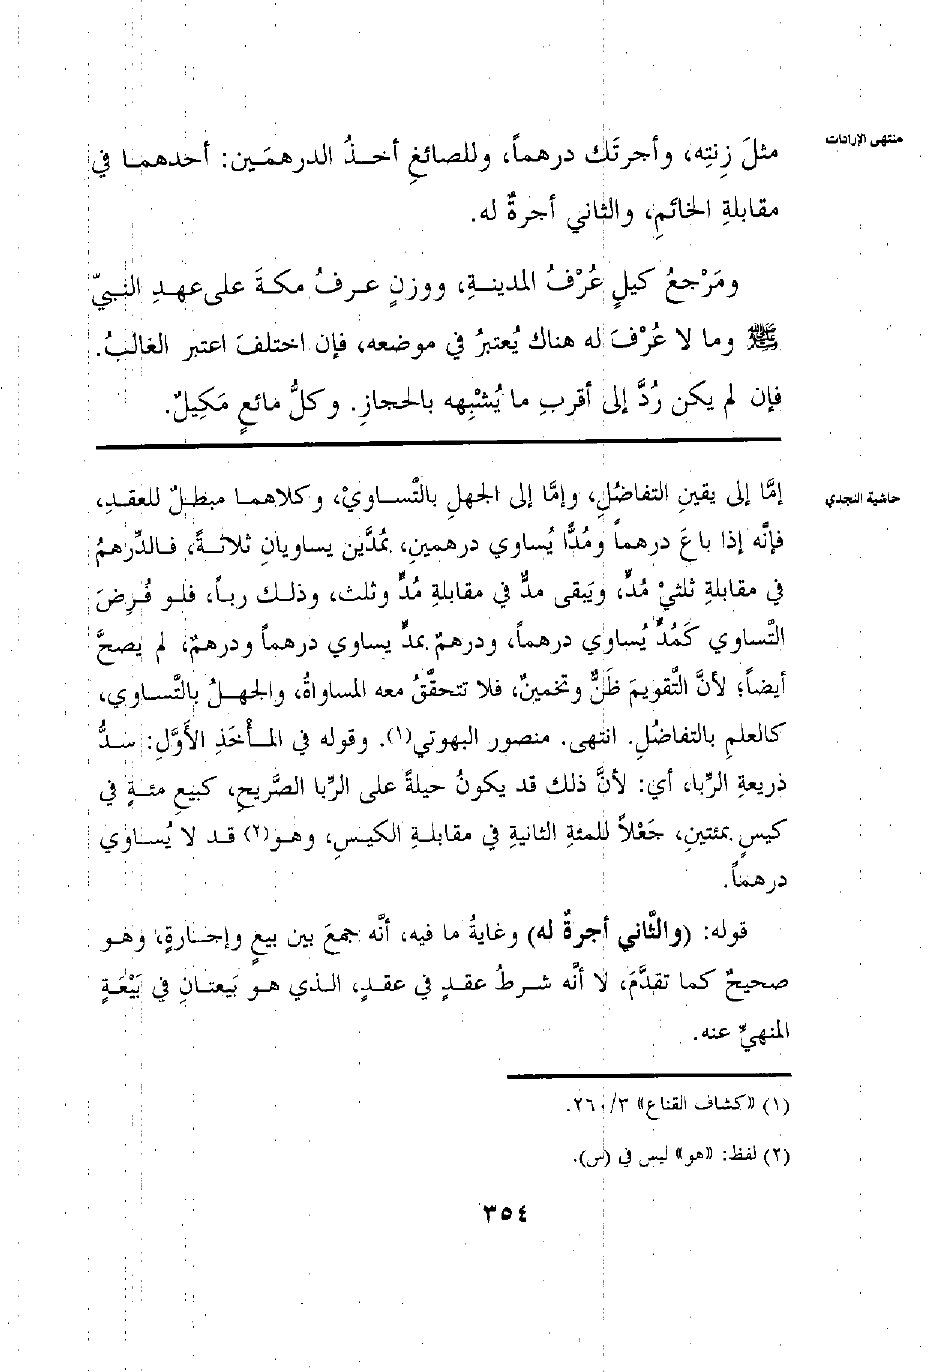 منتهى الإرادات
مثلَ زِنتِه، وأجرتَك درهماً، وللصائغِ أخذُ الدرهمَين: أحدهما في
مقابلةِ الخاتَمِ، والثاني أجرةٌ له.
ومَرْجعُ كيلٍ عُرْفُ المدينةِ، ووزنٍ عرفُ مكةَ على عهدِ النبيِّ
ﷺ وما لا عُرْفَ له هناك يُعتبرُ في موضعه، فإن اختلفَ اعتبر الغالبُ.
فإن لم يكن رُدَّ إلى أقربِ ما يُشْبِهه بالحجازِ. وكلُّ مائعٍ مَكِيلٌ.
حاشية النجدي
إمَّا إلى يقينِ التفاضُلِ، وإمَّا إلى الجهلِ بالتَّساويْ، وكلاهما مبطلٌ للعقدِ،
فإنَّه إذا باعَ درهماً ومُدًّا يُساوي درهمينِ، بمُدَّين يساويانِ ثلاثةً، فالدِّرهمُ
في مقابلةِ ثلثيْ مُدٍّ، ويَبقى مدٌّ في مقابلةِ مُدٍّ وثلث، وذلك رباً، فلو فُرِضَ
التَّساوي كَمُدٍّ يُساوي درهماً، ودرهمٌ بمدٍّ يساوي درهماً ودرهمٌ، لم يصحَّ
أيضاً؛ لأنَّ التَّقويمَ ظَنٌّ وتخمينٌ، فلا تتحقَّقُ معه المساواةُ، والجهلُ بالتَّساوي،
كالعلمِ بالتفاضُلِ. انتهى. منصور البهوتي(١). وقوله في المأْخَذِ الأَوَّلِ: سدُّ
ذريعةِ الرِّبا، أي: لأنَّ ذلك قد يكونُ حيلةً على الرِّبا الصَّريحِ، كبيعِ مئةٍ في
كيسٍ بمئتينِ، جَعْلاً للمئةِ الثانيةِ في مقابلةِ الكيسِ، وهو(٢) قد لا يُساوي
درهماً.
قوله: (والثَّاني أجرةٌ له) وغايةُ ما فيه، أنَّه جمعَ بين بيعٍ وإجارةٍ، وهو
صحيحٌ كما تقدَّمَ، لا أنَّه شرطُ عقدٍ في عقدٍ، الذي هو بَيعتانِ في بَيْعَةٍ
المنهيِّ عنه.
(١) «كشاف القناع» ٣/ ٢٦٠.
(٢) لفظ: «هو» ليس في (س).
٣٥٤